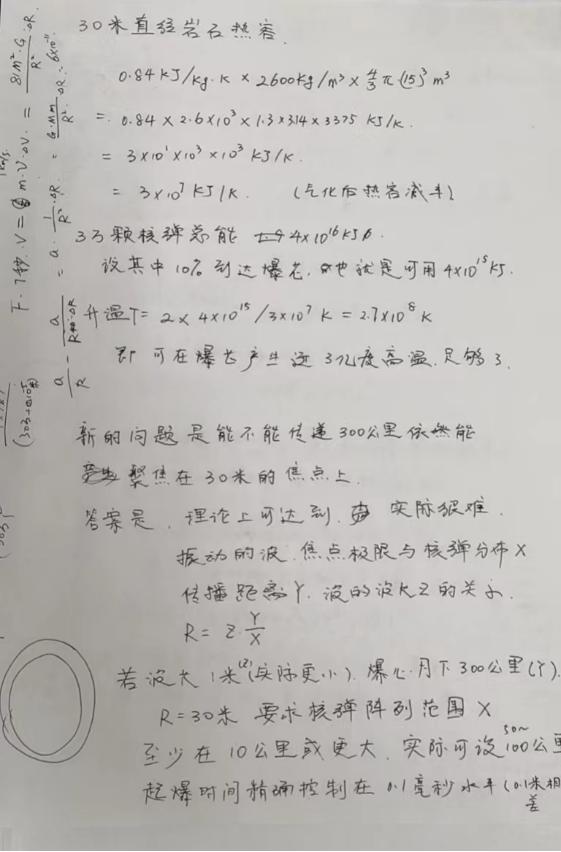 30米直径岩石热容.
0.84 KJ/kg·K × 2600kg/m³ × 4/3 π (15)³ m³
= 0.84 × 2.6×10³ × 1.3×3.14×3375 KJ/K.
= 3×10¹×10³×10³ KJ/K.
= 3×10⁷ KJ/K. (气化后热容减半)
3万颗核弹总能 4×10¹⁶KJ.
设其中10%到达爆芯, 也就是可用4×10¹⁵KJ.
升温T= 2×4×10¹⁵/3×10⁷ K = 2.7×10⁸ K
即可在爆芯产生近3亿度高温.足够了.
新的问题是能不能传递300公里依然能
聚焦在30米的焦点上.
答案是,理论上可达到, 实际很难.
振动的波.焦点极限与核弹分布X
传播距离Y,波的波长Z的关系.
R = Z·Y/X
若波长1米(Z)(实际更小).爆心月下300公里(Y).
R=30米 要求核弹阵列范围X
至少在10公里或更大,实际可设50~100公里
起爆时间精确控制在0.1毫秒水平(0.1米相
差